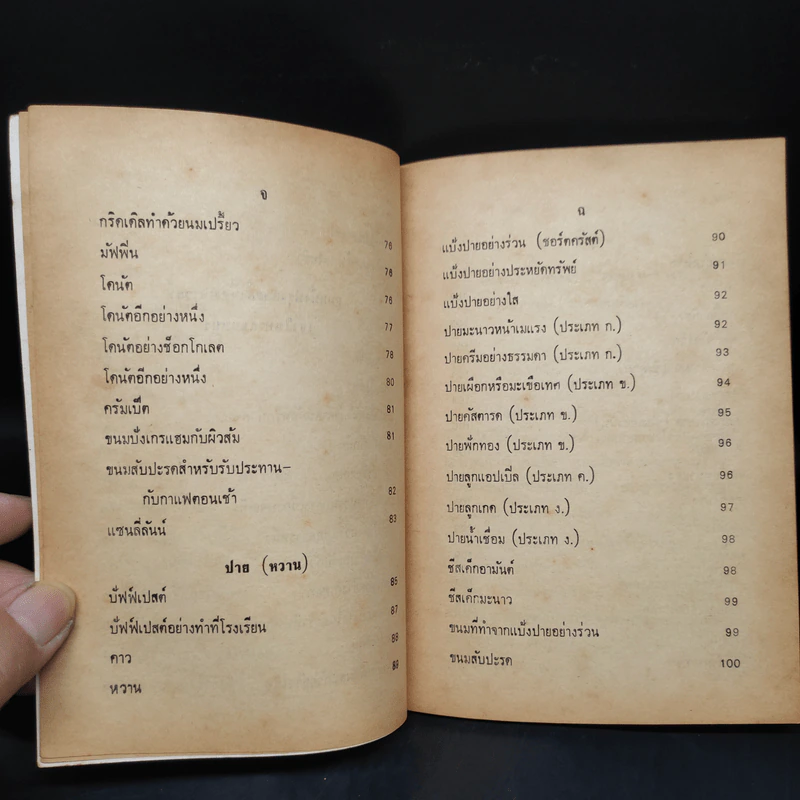 จ
กริดเดิลทำด้วยนมเปรี้ยว 76
มัฟฟิ่น 76
โดนัต 76
โดนัตอีกอย่างหนึ่ง 77
โดนัตอย่างช็อกโกเลต 78
โดนัตอีกอย่างหนึ่ง 80
ครัมเป็ต 81
ขนมปังเกรแฮมกับผิวส้ม 81
ขนมสับปะรดสำหรับรับประทาน-
กับกาแฟตอนเช้า 82
แซนลี่ลันน์ 83
ปาย (หวาน)
บัฟฟ์เปสต์ 85
บัฟฟ์เปสต์อย่างทำที่โรงเรียน 87
คาว 88
หวาน 89
ฉ
แป้งปายอย่างร่วน (ชอร์ตครัสต์) 90
แป้งปายอย่างประหยัดทรัพย์ 91
แป้งปายอย่างใส 92
ปายมะนาวหน้าเมแรง (ประเภท ก.) 92
ปายครีมอย่างธรรมดา (ประเภท ก.) 93
ปายเผือกหรือมะเขือเทศ (ประเภท ข.) 94
ปายคัสตารด (ประเภท ข.) 95
ปายฟักทอง (ประเภท ข.) 96
ปายลูกแอปเปิ้ล (ประเภท ค.) 96
ปายลูกเกด (ประเภท ง.) 97
ปายน้ำเชื่อม (ประเภท ง.) 98
ชีสเค็กอามันต์ 98
ชีสเค็กมะนาว 99
ขนมที่ทำจากแป้งปายอย่างร่วน 99
ขนมสับปะรด 100